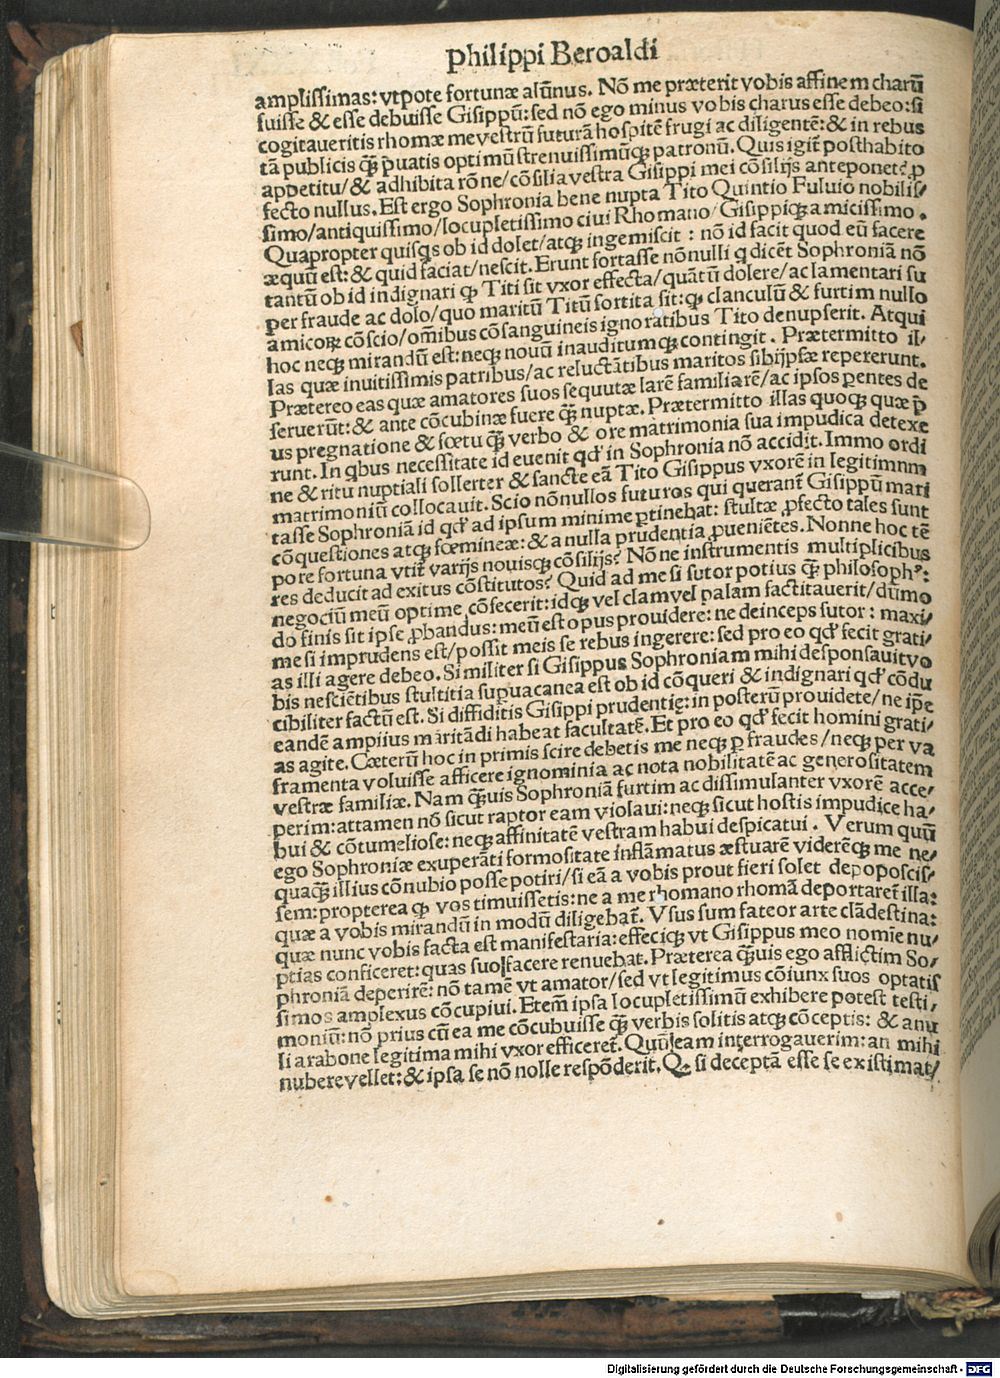 Philippi Beroaldi
amplissimas: vtpote fortunæ alũnus. Nõ me præterit vobis affinem charũ
fuisse & esse debuisse Gisippũ: sed nõ ego minus vobis charus esse debeo: si
cogitaueritis rhomæ me vestrũ futurã hospitẽ frugi ac diligentẽ: & in rebus
tã publicis q̃ꝫ p̃uatis optimũ strenuissimũqꝫ patronũ. Quis igit̃ posthabito
appetitu/& adhibita rõne/cõsilia vestra Gisippi mei cõsilijs anteponet: ꝓ
fecto nullus. Est ergo Sophronia bene nupta Tito Quintio Fuluio nobilis/
simo/antiquissimo/locupletissimo ciui Rhomano/Gisippiqꝫ amicissimo.
Quapropter quisqs ob id dolet/atqꝫ ingemiscit: nõ id facit quod eũ facere
æquũ est: & quid faciat/nescit. Erunt fortasse nõnulli q dicẽt Sophroniã nõ
tantũ ob id indignari ꝙ Titi sit vxor effecta/quãtũ dolere/ac lamentari su
per fraude ac dolo/quo maritũ Titũ sortita sit: ꝙ clanculũ & furtim nullo
amicoꝝ cõscio/om̃ibus cõsanguineis ignorãtibus Tito denupserit. Atqui
hoc neqꝫ mirandũ est: neqꝫ nouũ inauditumqꝫ contingit. Prætermitto il/
las quæ inuitissimis patribus/ac reluctãtibus maritos sibijpsæ repererunt.
Prætereo eas quæ amatores suos sequutæ larẽ familiarẽ/ac ipsos ꝑentes de
seruerũt: & ante cõcubinæ fuere q̃ꝫ nuptæ. Prætermitto illas quoqꝫ quæ p̃
us pregnatione & fœtu q̃ꝫ verbo & ore matrimonia sua impudica detexe
runt. In qbus necessitate id euenit qd̛ in Sophronia nõ accidit. Immo ordi
ne & ritu nuptiali sollerter & sancte eã Tito Gisippus vxorẽ in legitimnm
matrimoniũ collocauit. Scio nõnullos futuros qui querant̃ Gisippũ mari
tasse Sophroniã id qd̛ ad ipsum minime ꝑtinebat: stultæ ꝓfecto tales sunt
cõquestiones atqꝫ fœmineæ: & a nulla prudentia ꝓueniẽtes. Nonne hoc tẽ
pore fortuna vtit̃ varijs nouisqꝫ cõsilijs? Nõne instrumentis multiplicibus
res deducit ad exitus cõstitutos? Quid ad me si sutor potius q̃ꝫ philosophꝰ:
negociũ meũ optime cõfecerit: idqꝫ vel clam vel palam factitauerit/dũmo
do finis sit ipse ꝓbandus: meũ est opus prouidere: ne deinceps sutor: maxi/
me si imprudens est/possit meis se rebus ingerere: sed pro eo qd̛ fecit grati/
as illi agere debeo. Similiter si Gisippus Sophroniam mihi desponsauit vo
bis nesciẽtibus stultitia supuacanea est ob id cõqueri & indignari qd̛ cõdu
cibiliter factũ est. Si diffiditis Gisippi prudentię: in posterũ prouidete/ne ip̃e
eandẽ ampiius maritãdi habeat facultatẽ. Et pro eo qd̛ fecit homini grati/
as agite. Cæterũ hoc in primis scire debetis me neqꝫ ꝑ fraudes/neqꝫ per va
framenta voluisse afficere ignominia ac nota nobilitatẽ ac generositatem
vestræ familiæ. Nam q̃ꝫuis Sophroniã furtim ac dissimulanter vxorẽ acce/
perim: attamen nõ sicut raptor eam violaui: neqꝫ sicut hostis impudice ha/
bui & cõtumeliose: neqꝫ affinitatẽ vestram habui despicatui. Verum quũ
ego Sophroniæ exuperãti formositate inflãmatus æstuarẽ viderẽqꝫ me ne/
quaq̃ꝫ illius cõnubio posse potiri/si eã a vobis prout fieri solet depoposcis/
sem: propterea ꝙ vos timuissetis: ne a me rhomano rhomã deportaret̃ illa:
quæ a vobis mirandũ in modũ diligebat̃. Vsus sum fateor arte clãdestina:
quæ nunc vobis facta est manifestaria: effeciqꝫ vt Gisippus meo nomĩe nu/
ptias conficeret: quas suo facere renuebat. Præterea q̃ꝫuis ego afflictim So/
phroniã deperirẽ: nõ tamẽ vt amator/sed vt legitimus cõiunx suos optatis
simos amplexus cõcupiui. Etem̃ ipsa locupletissimũ exhibere potest testi/
moniũ: nõ prius cũ ea me cõcubuisse q̃ꝫ verbis solitis atqꝫ cõceptis: & anu
li arabone legitima mihi vxor efficeret̃. Quũ eam interrogauerim: an mihi
nubere vellet: & ipsa se nõ nolle respõderit. Qꝙ si deceptã esse se existimat/
Digitalisierung gefördert durch die Deutsche Forschungsgemeinschaft - DFG